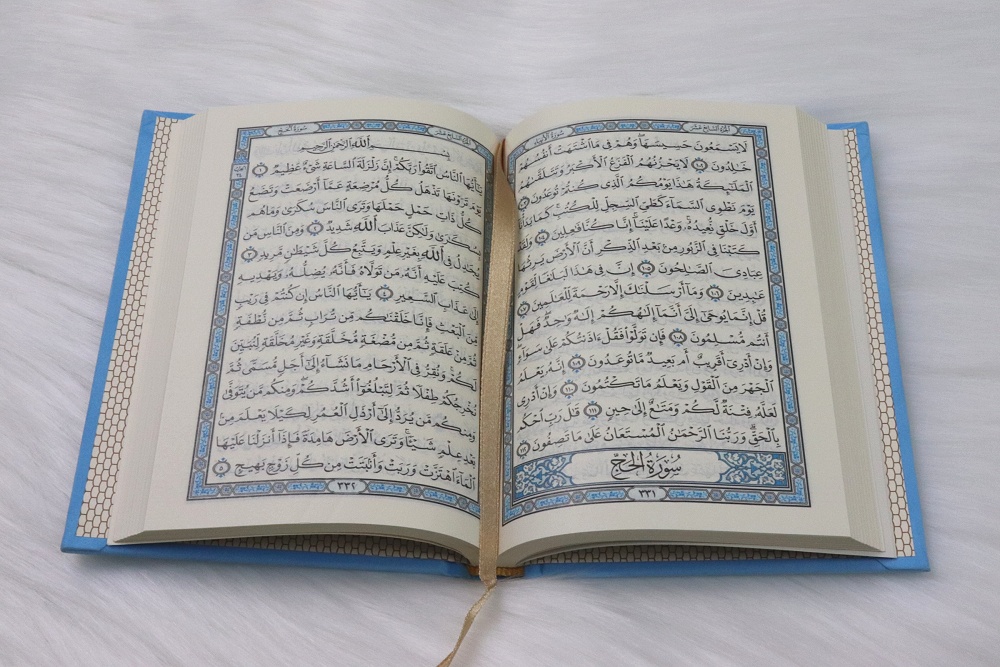 الجزء السابع عشر
سورة الأنبياء
لَا يَسْمَعُونَ حَسِيسَهَا ۖ وَهُمْ فِى مَا ٱشْتَهَتْ أَنفُسُهُمْ
خَٰلِدُونَ ١٠٢ لَا يَحْزُنُهُمُ ٱلْفَزَعُ ٱلْأَكْبَرُ وَتَتَلَقَّىٰهُمُ
ٱلْمَلَٰٓئِكَةُ هَٰذَا يَوْمُكُمُ ٱلَّذِى كُنتُمْ تُوعَدُونَ ١٠٣
يَوْمَ نَطْوِى ٱلسَّمَآءَ كَطَىِّ ٱلسِّجِلِّ لِلْكُتُبِ ۚ كَمَا بَدَأْنَآ
أَوَّلَ خَلْقٍ نُّعِيدُهُۥ ۚ وَعْدًا عَلَيْنَآ ۚ إِنَّا كُنَّا فَٰعِلِينَ ١٠٤ وَلَقَدْ
كَتَبْنَا فِى ٱلزَّبُورِ مِنۢ بَعْدِ ٱلذِّكْرِ أَنَّ ٱلْأَرْضَ يَرِثُهَا
عِبَادِىَ ٱلصَّٰلِحُونَ ١٠٥ إِنَّ فِى هَٰذَا لَبَلَٰغًا لِّقَوْمٍ
عَٰبِدِينَ ١٠٦ وَمَآ أَرْسَلْنَٰكَ إِلَّا رَحْمَةً لِّلْعَٰلَمِينَ ١٠٧
قُلْ إِنَّمَا يُوحَىٰٓ إِلَىَّ أَنَّمَآ إِلَٰهُكُمْ إِلَٰهٌ وَٰحِدٌ ۖ فَهَلْ
أَنتُم مُّسْلِمُونَ ١٠٨ فَإِن تَوَلَّوْا۟ فَقُلْ ءَاذَنتُكُمْ عَلَىٰ سَوَآءٍ ۖ
وَإِنْ أَدْرِىٓ أَقَرِيبٌ أَم بَعِيدٌ مَّا تُوعَدُونَ ١٠٩ إِنَّهُۥ يَعْلَمُ
ٱلْجَهْرَ مِنَ ٱلْقَوْلِ وَيَعْلَمُ مَا تَكْتُمُونَ ١١٠ وَإِنْ أَدْرِى
لَعَلَّهُۥ فِتْنَةٌ لَّكُمْ وَمَتَٰعٌ إِلَىٰ حِينٍ ١١١ قَٰلَ رَبِّ ٱحْكُم
بِٱلْحَقِّ ۗ وَرَبُّنَا ٱلرَّحْمَٰنُ ٱلْمُسْتَعَانُ عَلَىٰ مَا تَصِفُونَ ١١٢
سُورَةُ الحَجّ
٣٣١
الجزء السابع عشر
سورة الحج
بِسْمِ ٱللَّهِ ٱلرَّحْمَٰنِ ٱلرَّحِيمِ
يَٰٓأَيُّهَا ٱلنَّاسُ ٱتَّقُوا۟ رَبَّكُمْ ۚ إِنَّ زَلْزَلَةَ ٱلسَّاعَةِ شَىْءٌ عَظِيمٌ ١
يَوْمَ تَرَوْنَهَا تَذْهَلُ كُلُّ مُرْضِعَةٍ عَمَّآ أَرْضَعَتْ وَتَضَعُ
كُلُّ ذَاتِ حَمْلٍ حَمْلَهَا وَتَرَى ٱلنَّاسَ سُكَٰرَىٰ وَمَا هُم
بِسُكَٰرَىٰ وَلَٰكِنَّ عَذَابَ ٱللَّهِ شَدِيدٌ ٢ وَمِنَ ٱلنَّاسِ مَن
يُجَٰدِلُ فِى ٱللَّهِ بِغَيْرِ عِلْمٍ وَيَتَّبِعُ كُلَّ شَيْطَٰنٍ مَّرِيدٍ ٣
كُتِبَ عَلَيْهِ أَنَّهُۥ مَن تَوَلَّاهُ فَأَنَّهُۥ يُضِلُّهُۥ وَيَهْدِيهِ
إِلَىٰ عَذَابِ ٱلسَّعِيرِ ٤ يَٰٓأَيُّهَا ٱلنَّاسُ إِن كُنتُمْ فِى رَيْبٍ
مِّنَ ٱلْبَعْثِ فَإِنَّا خَلَقْنَٰكُم مِّن تُرَابٍ ثُمَّ مِن نُّطْفَةٍ
ثُمَّ مِنْ عَلَقَةٍ ثُمَّ مِن مُّضْغَةٍ مُّخَلَّقَةٍ وَغَيْرِ مُخَلَّقَةٍ لِّنُبَيِّنَ
لَكُمْ ۚ وَنُقِرُّ فِى ٱلْأَرْحَامِ مَا نَشَآءُ إِلَىٰٓ أَجَلٍ مُّسَمًّى ثُمَّ
نُخْرِجُكُمْ طِفْلًا ثُمَّ لِتَبْلُغُوٓا۟ أَشُدَّكُمْ ۖ وَمِنكُم مَّن يُتَوَفَّىٰ
وَمِنكُم مَّن يُرَدُّ إِلَىٰٓ أَرْذَلِ ٱلْعُمُرِ لِكَيْلَا يَعْلَمَ مِنۢ
بَعْدِ عِلْمٍ شَيْـًٔا ۚ وَتَرَى ٱلْأَرْضَ هَامِدَةً فَإِذَآ أَنزَلْنَا عَلَيْهَا
ٱلْمَآءَ ٱهْتَزَّتْ وَرَبَتْ وَأَنۢبَتَتْ مِن كُلِّ زَوْجٍۭ بَهِيجٍ ٥
٣٣٢